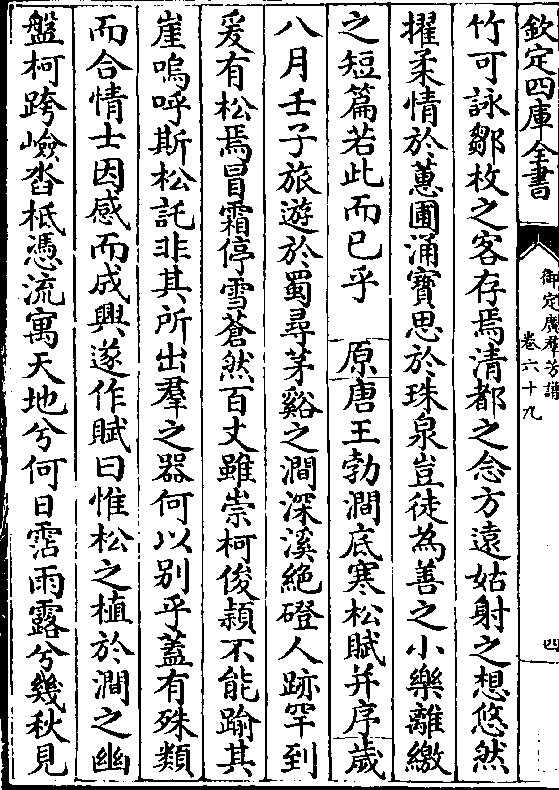 欽定四庫全書
御定廣羣芳譜
卷六十九
四
竹可詠鄒枚之客存焉清都之念方遠姑射之想悠然
擢柔情於蕙圃涌寶思於珠泉豈徒為善之小樂離繳
之短篇若此而已乎　原唐王勃澗底寒松賦并序歲
八月壬子旅遊於蜀尋茅谿之澗深溪絶磴人跡罕到
爰有松焉冒霜停雪蒼然百丈雖崇柯俊穎不能踰其
崖嗚呼斯松託非其所出羣之器何以別乎蓋有殊類
而合情士因感而成興遂作賦曰惟松之植於澗之幽
盤柯跨嶮沓柢憑流寓天地兮何日霑雨露兮幾秋見